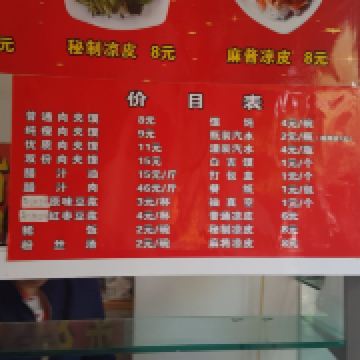 元
秘制凉皮 8元
麻酱凉皮 8元
价目表
普通肉夹馍 8元
纯瘦肉夹馍 9元
优质肉夹馍 11元
双份肉夹馍 15元
腊汁油 15元/斤
腊汁肉 46元/斤
原味豆浆 3元/杯
红枣豆浆 4元/杯
稀饭 2元/碗
粉丝汤 2元/碗
馄饨 4元/碗
瓶装汽水 2元/瓶
罐装汽水 4元/瓶
白吉馍 1元/个
打包盒 1元/个
餐纸 1元/包
抽真空 1元/个
普通凉皮 6元
秘制凉皮 8元
麻酱凉皮 8元